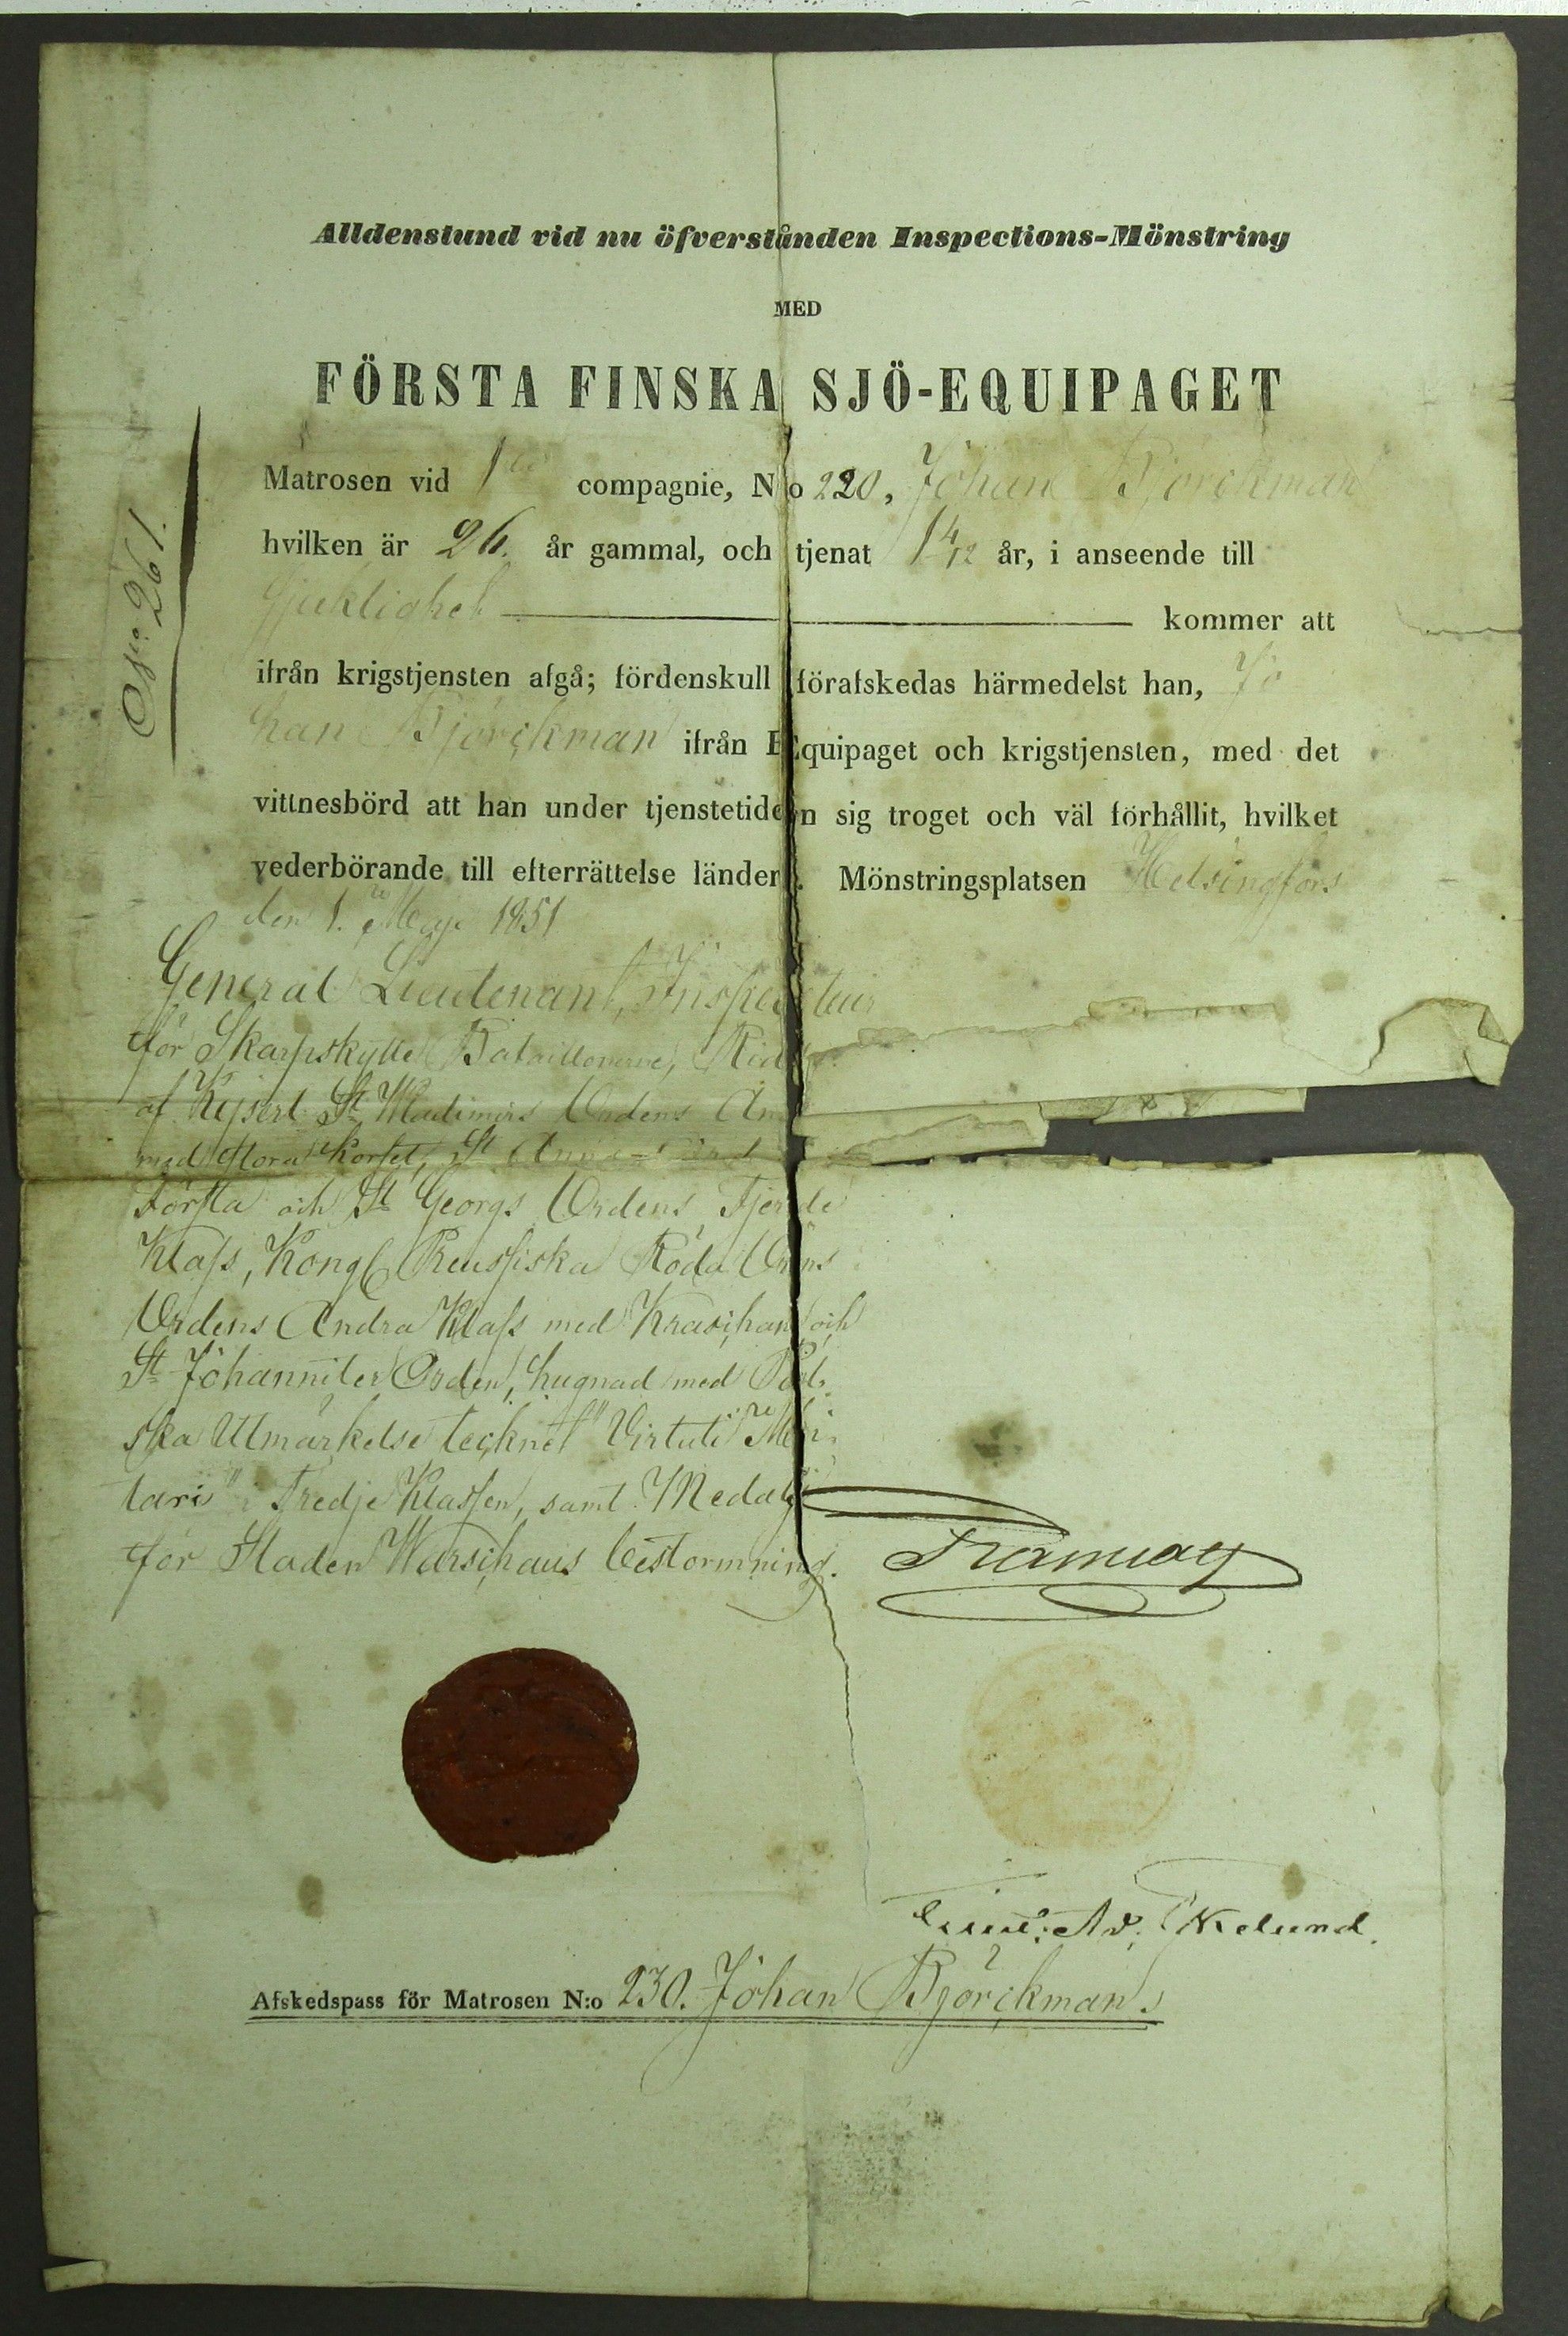 Alldenstund vid nu öfverstånden Inspections-Mönstring
MED
FÖRSTA FINSKA SJÖ-EQUIPAGET
Matrosen vid 1 compagnie, No 220, Johan Björckman
hvilken är 26. år gammal, och tjenat 1 4/12 år, i anseende till
Sjuklighet kommer att
ifrån krigstjensten afgå; fördenskull förafskedas härmedelst han, Jo
han Björckman ifrån Equipaget och krigstjensten, med det
vittnesbörd att han under tjenstetiden sig troget och väl förhållit, hvilket
vederbörande till efterrättelse länder. Mönstringsplatsen Helsingfors
den 1. Maji 1851
General Lieutenant, Inspecteur
för Skarpskytte Bataillonerne, Rid
af Kejserl St Wladimirs Ordens An
med stora Korset, St Anne
Första och St Georgs Ordens Fjerde
Klass, Kongl Preussiska Röda Örns
Ordens Andra Klass med Kraschan och
St Johanniter Orden, hugnad med Pol
ska Utmärkelse tecknet "Virtuti Mili
taris" Tredje Klassen, samt Medalj
för Staden Warschaus bestormning.
Ramsay
Ad. Ekelund.
Afskedspass för Matrosen N:o 230. Johan Björckman.
261.